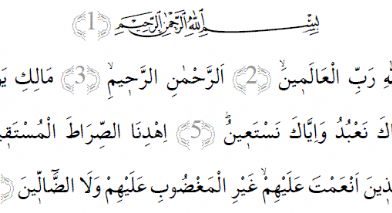 بِسْمِ اللّٰهِ الرَّحْمٰنِ الرَّحٖيمِ ﴿1﴾
رَبِّ الْعَالَمٖينَۙ ﴿2﴾ اَلرَّحْمٰنِ الرَّحٖيمِۙ ﴿3﴾ مَالِكِ
نَعْبُدُ وَاِيَّاكَ نَسْتَعٖينُۜ ﴿5﴾ اِهْدِنَا الصِّرَاطَ
اَنْعَمْتَ عَلَيْهِمْۙ غَيْرِ الْمَغْضُوبِ عَلَيْهِمْ وَلَا الضَّٓالّٖينَ